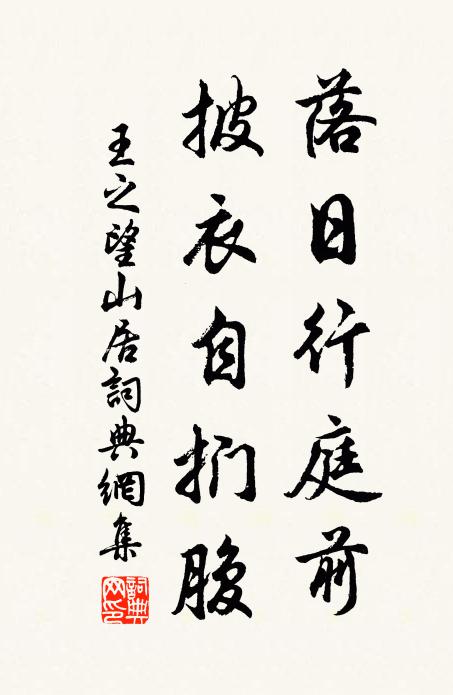 落日行庭前
披衣自捫腹
王之望山居詞典網集
詞典網印